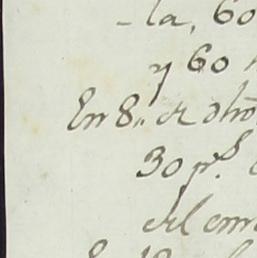 -la, 60
y 60
En 8,, de dho
30 p.s
del